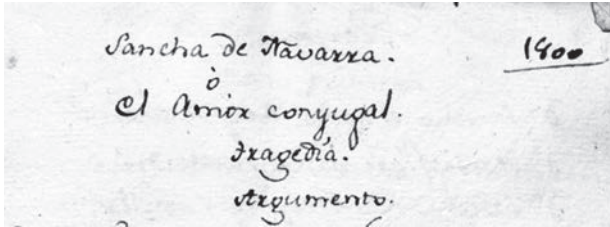 Sancha de Navarra. 1800
ò
el Amor conyugal.
Tragedia.
Argumento.